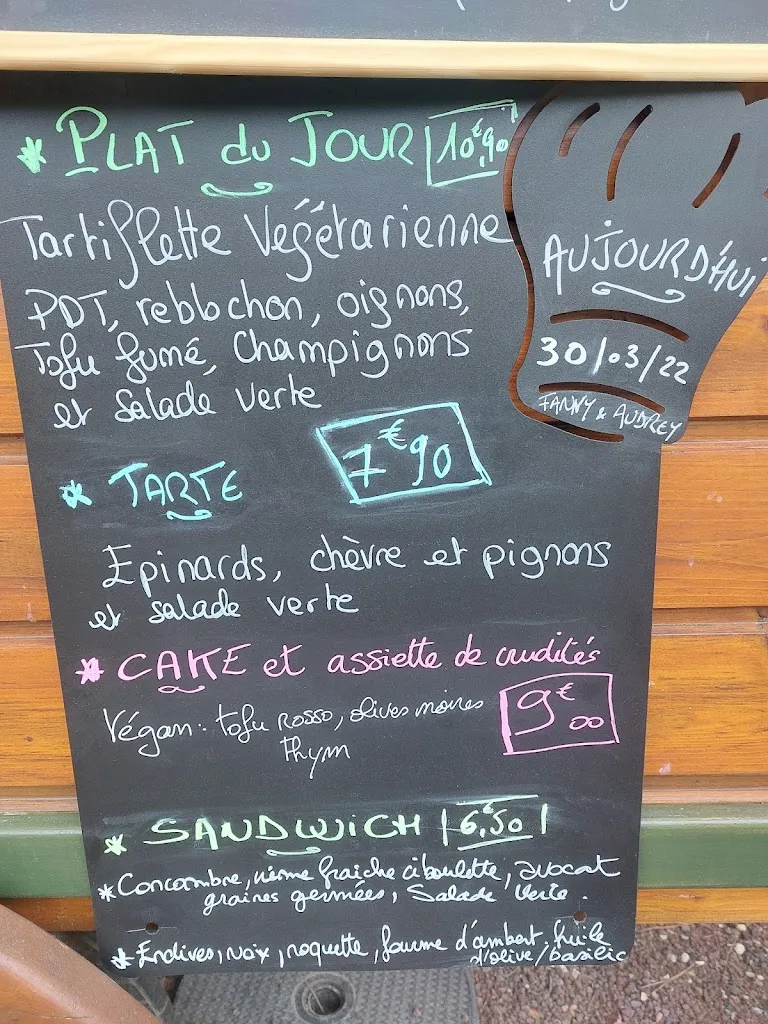 * PLAT du JOUR 10€,90
Tartiflette Végétarienne
PDT, reblochon, oignons,
Tofu fumé, Champignons
et Salade verte
* TARTE 7€90
Epinards, chèvre et pignons
et salade verte
* CAKE et assiette de crudités
Végan: tofu rosso, olives noires 9€00
thym
* SANDWICH 6€,50
* Concombre, crème fraiche ciboulette, avocat
graines germées, Salade Verte.
* Endives, noix, roquette, fourme d'ambert, huile
d'olive/basilic
AUJOURD'HUI
30/03/22
FANNY & AUDREY